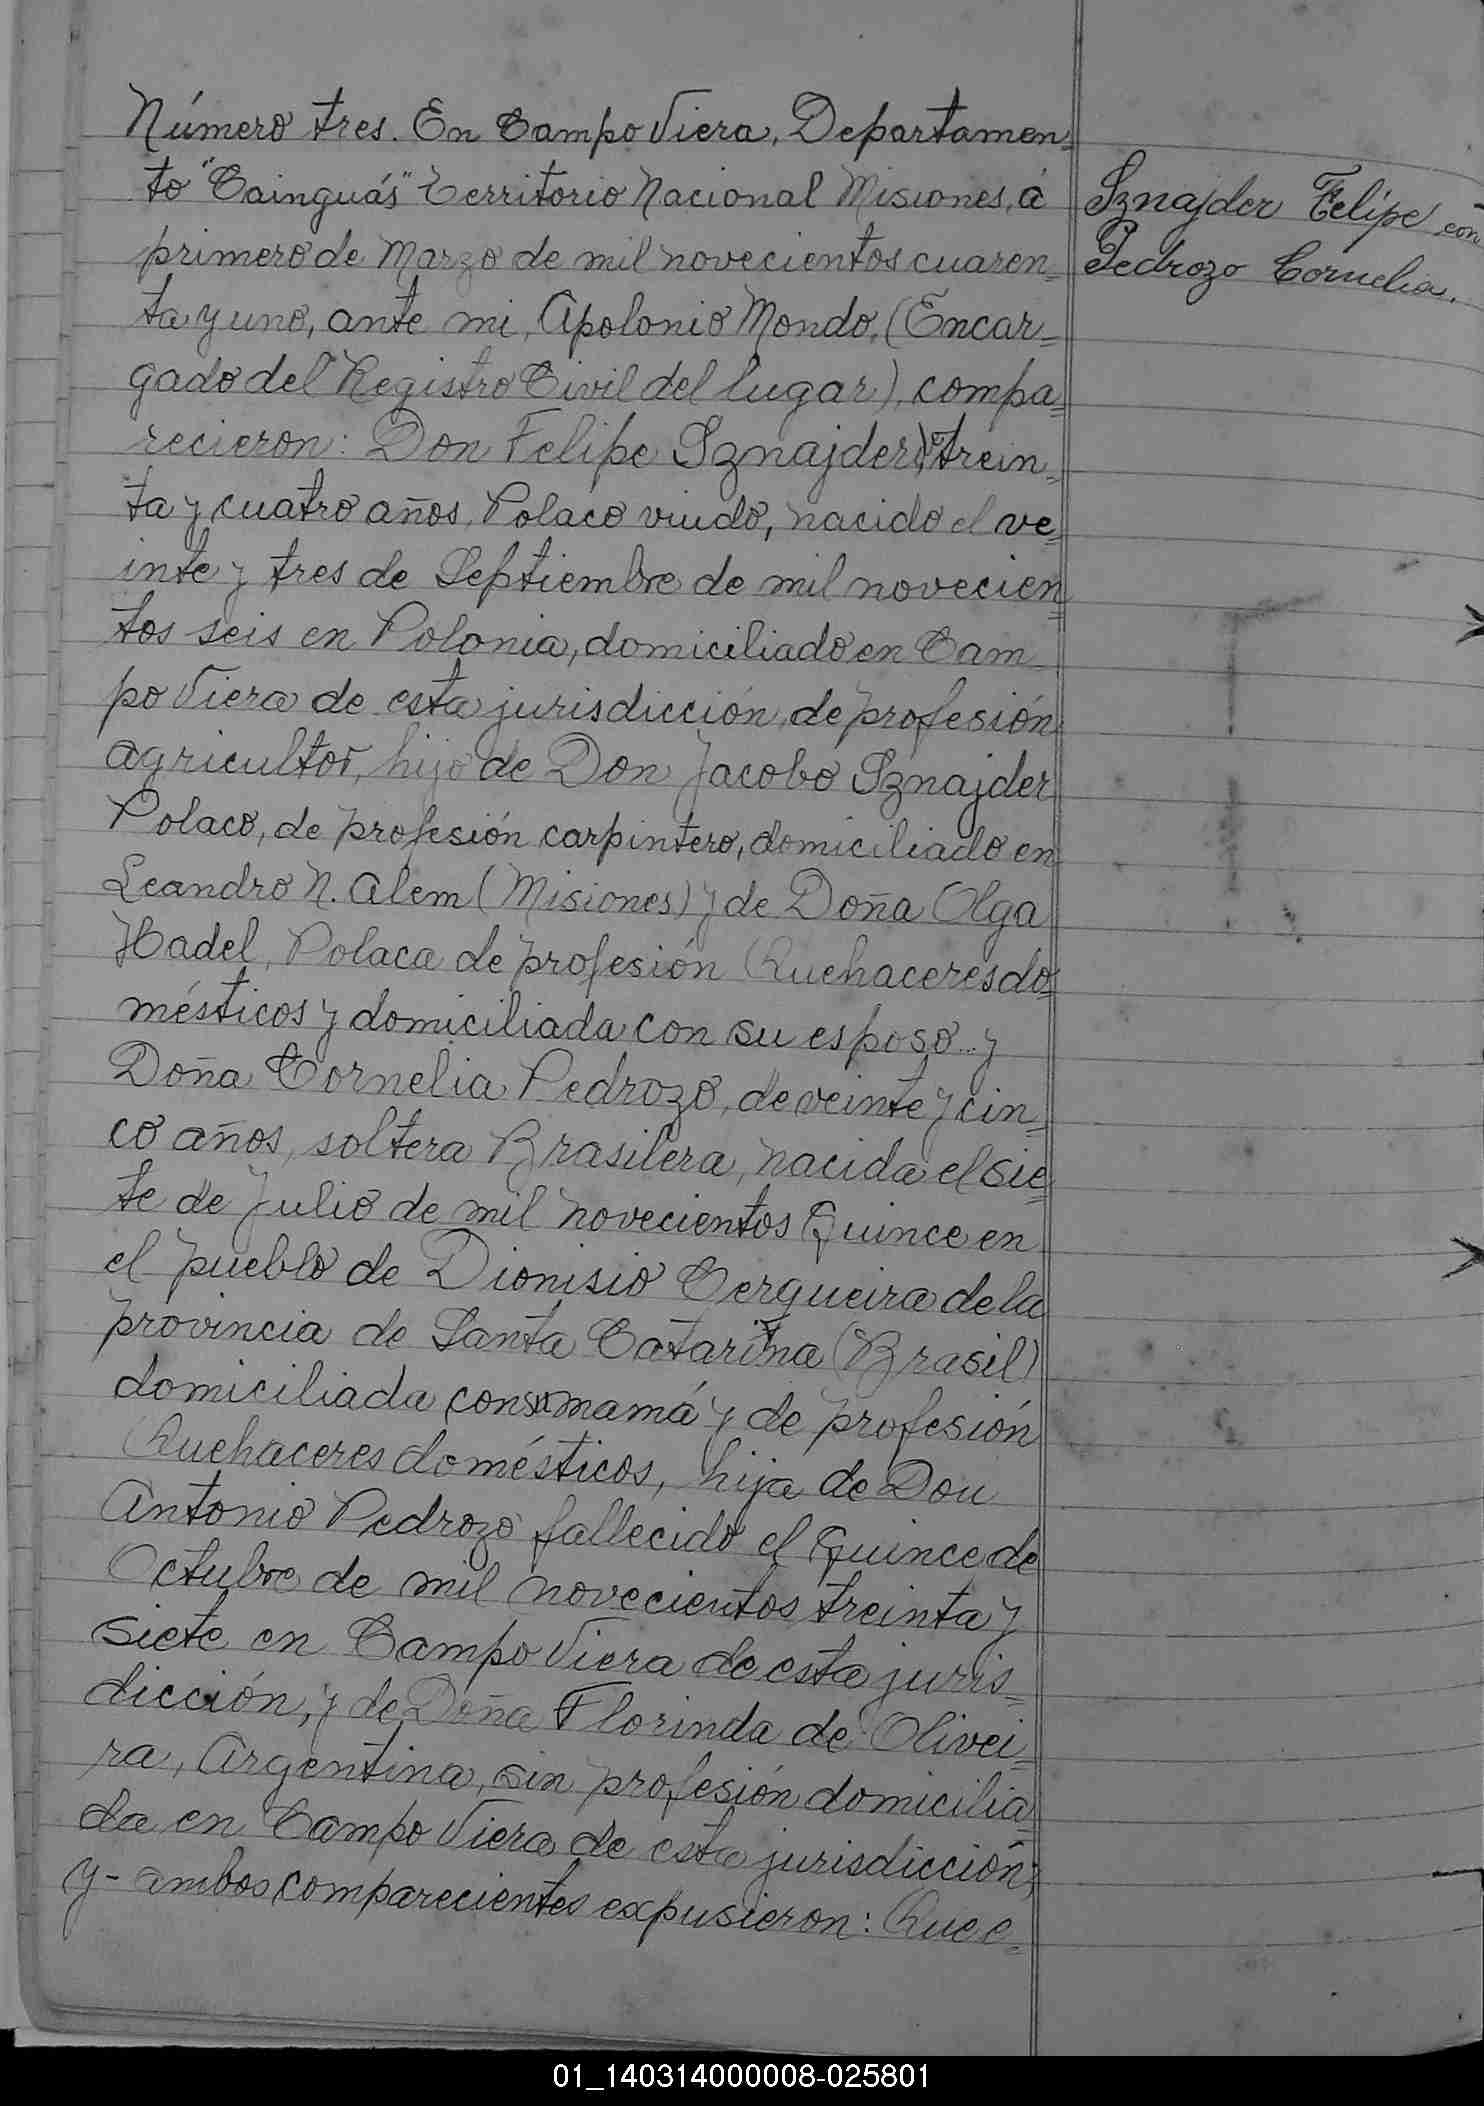 Número tres. En Campo Viera, Departamen=
to "Cainguás" Territorio Nacional Misiones, á
primero de Marzo de mil novecientos cuaren=
ta y uno, ante mi, Apolonio Mondo, (Encar=
gado del Registro Civil del lugar), compa=
recieron: Don Felipe Sznajder, trein=
ta y cuatro años, Polaco viudo, nacido el ve=
inte y tres de Septiembre de mil novecien=
tos seis en Polonia, domiciliado en Cam
po Viera de esta jurisdicción, de profesión
agricultor, hijo de Don Jacobo Sznajder
Polaco, de profesión carpintero, domiciliado en
Leandro N. Alem (Misiones) y de Doña Olga
Hadel, Polaca de profesión Quehaceres do=
mésticos y domiciliada con su esposo y
Doña Cornelia Pedrozo, de veinte y cin=
co años, soltera Brasilera, nacida el sie=
te de Julio de mil novecientos Quince en
el pueblo de Dionisio Cerqueira de la
provincia de Santa Catarina (Brasil)
domiciliada con su mamá y de profesión
Quehaceres domésticos, hija de Don
Antonio Pedrozo fallecido el Quince de
Octubre de mil novecientos treinta y
siete en Campo Viera de esta juris=
dicción, y de Doña Florinda de Olivei=
ra, Argentina, sin profesión domicilia=
da en Campo Viera de esta jurisdicción;
y- ambos comparecientes expusieron: Que e=
Sznajder Felipe con
Pedrozo Cornelia.
01_140314000008-025801